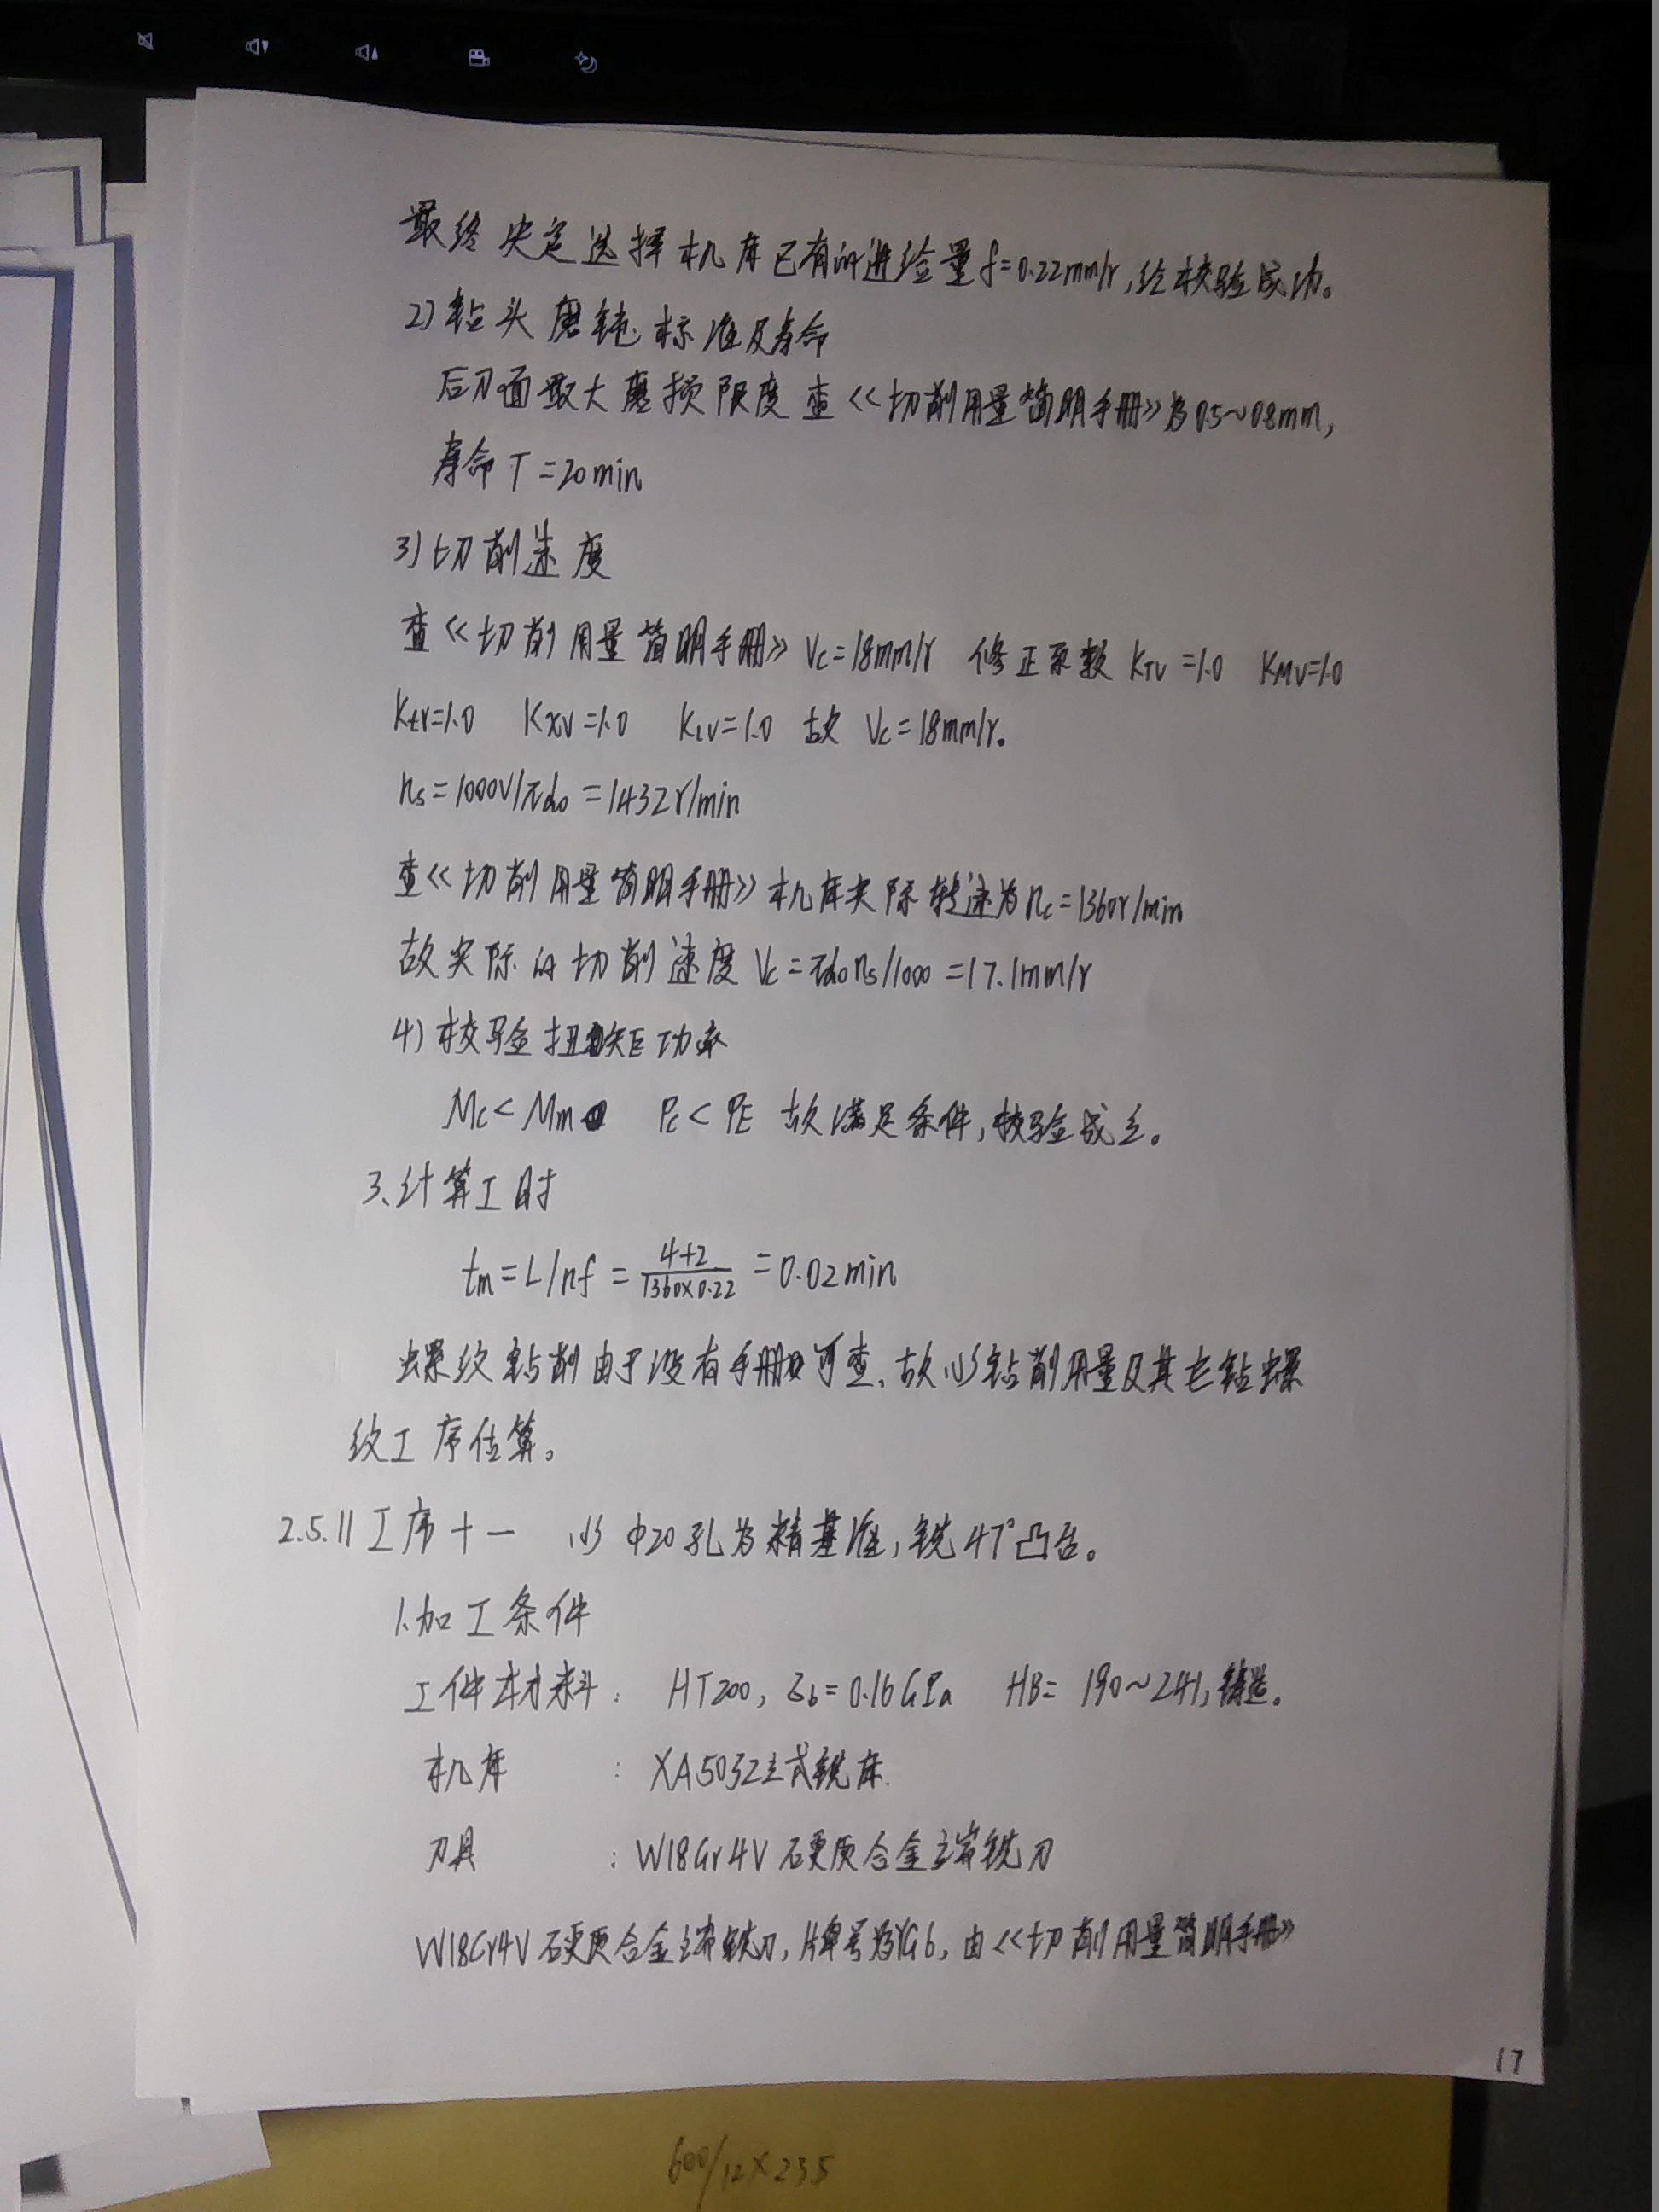 最终决定选择机床已有的进给量f=0.22mm/r,经校验成功。
2)钻头磨钝标准及寿命
后刀面最大磨损限度查《切削用量简明手册》为0.5~0.8mm,
寿命T=20min
3)切削速度
查《切削用量简明手册》Vc=18mm/r 修正系数KTV=1.0 KMV=1.0
Ktv=1.0 Kxv=1.0 K1v=1.0 故 Vc=18mm/r。
ns=1000V/πd0=1432r/min
查《切削用量简明手册》机床实际转速为nc=1360r/min
故实际的切削速度Vc=πd0ns/1000=17.1mm/r
4)校验扭矩功率
Mc<Mm Pc<PE 故满足条件,校验成立。
3、计算工时
tm=L/nf=4+2/1360×0.22=0.02min
螺纹钻削由于没有手册可查,故以钻削用量及其它钻螺
纹工序估算。
2.5.11工序十一 以Φ20孔为精基准,铣47°凸台。
1.加工条件
工件材料: HT200,σb=0.16GPa HB=190~241,铸造。
机床 : XA5032立式铣床.
刀具 : W18Cr4V硬质合金端铣刀
W18Cr4V硬质合金端铣刀,牌号为YG6,由《切削用量简明手册》
17
600/12×235